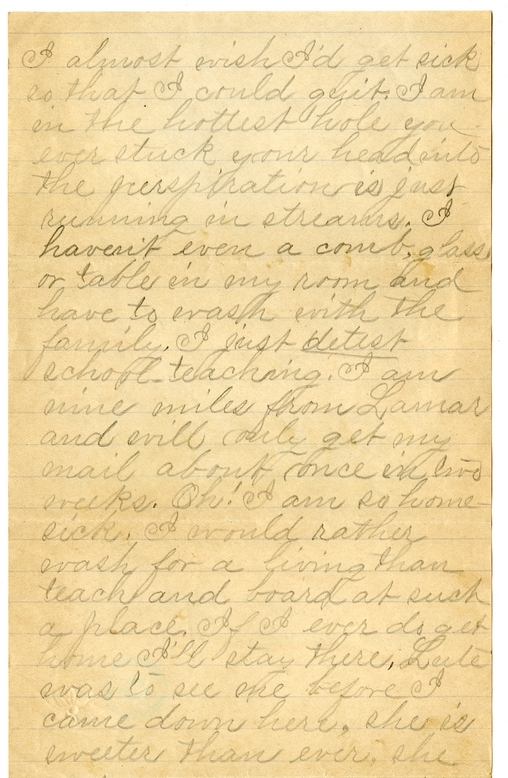 I almost wish I'd get sick
so that I could quit. I am
in the hottest hole you
ever stuck your head into
the perspiration is just
running in streams. I
haven't even a comb, glass
or table in my room and
have to wash with the
family. I just detest
school-teaching. I am
nine miles from Lamar
and will only get my
mail about once in two
weeks. Oh! I am so home-
sick. I would rather
wash for a living than
teach and board at such
a place. If I ever do get
home I'll stay there. Lute
was to see me before I
came down here, she is
sweeter than ever, she